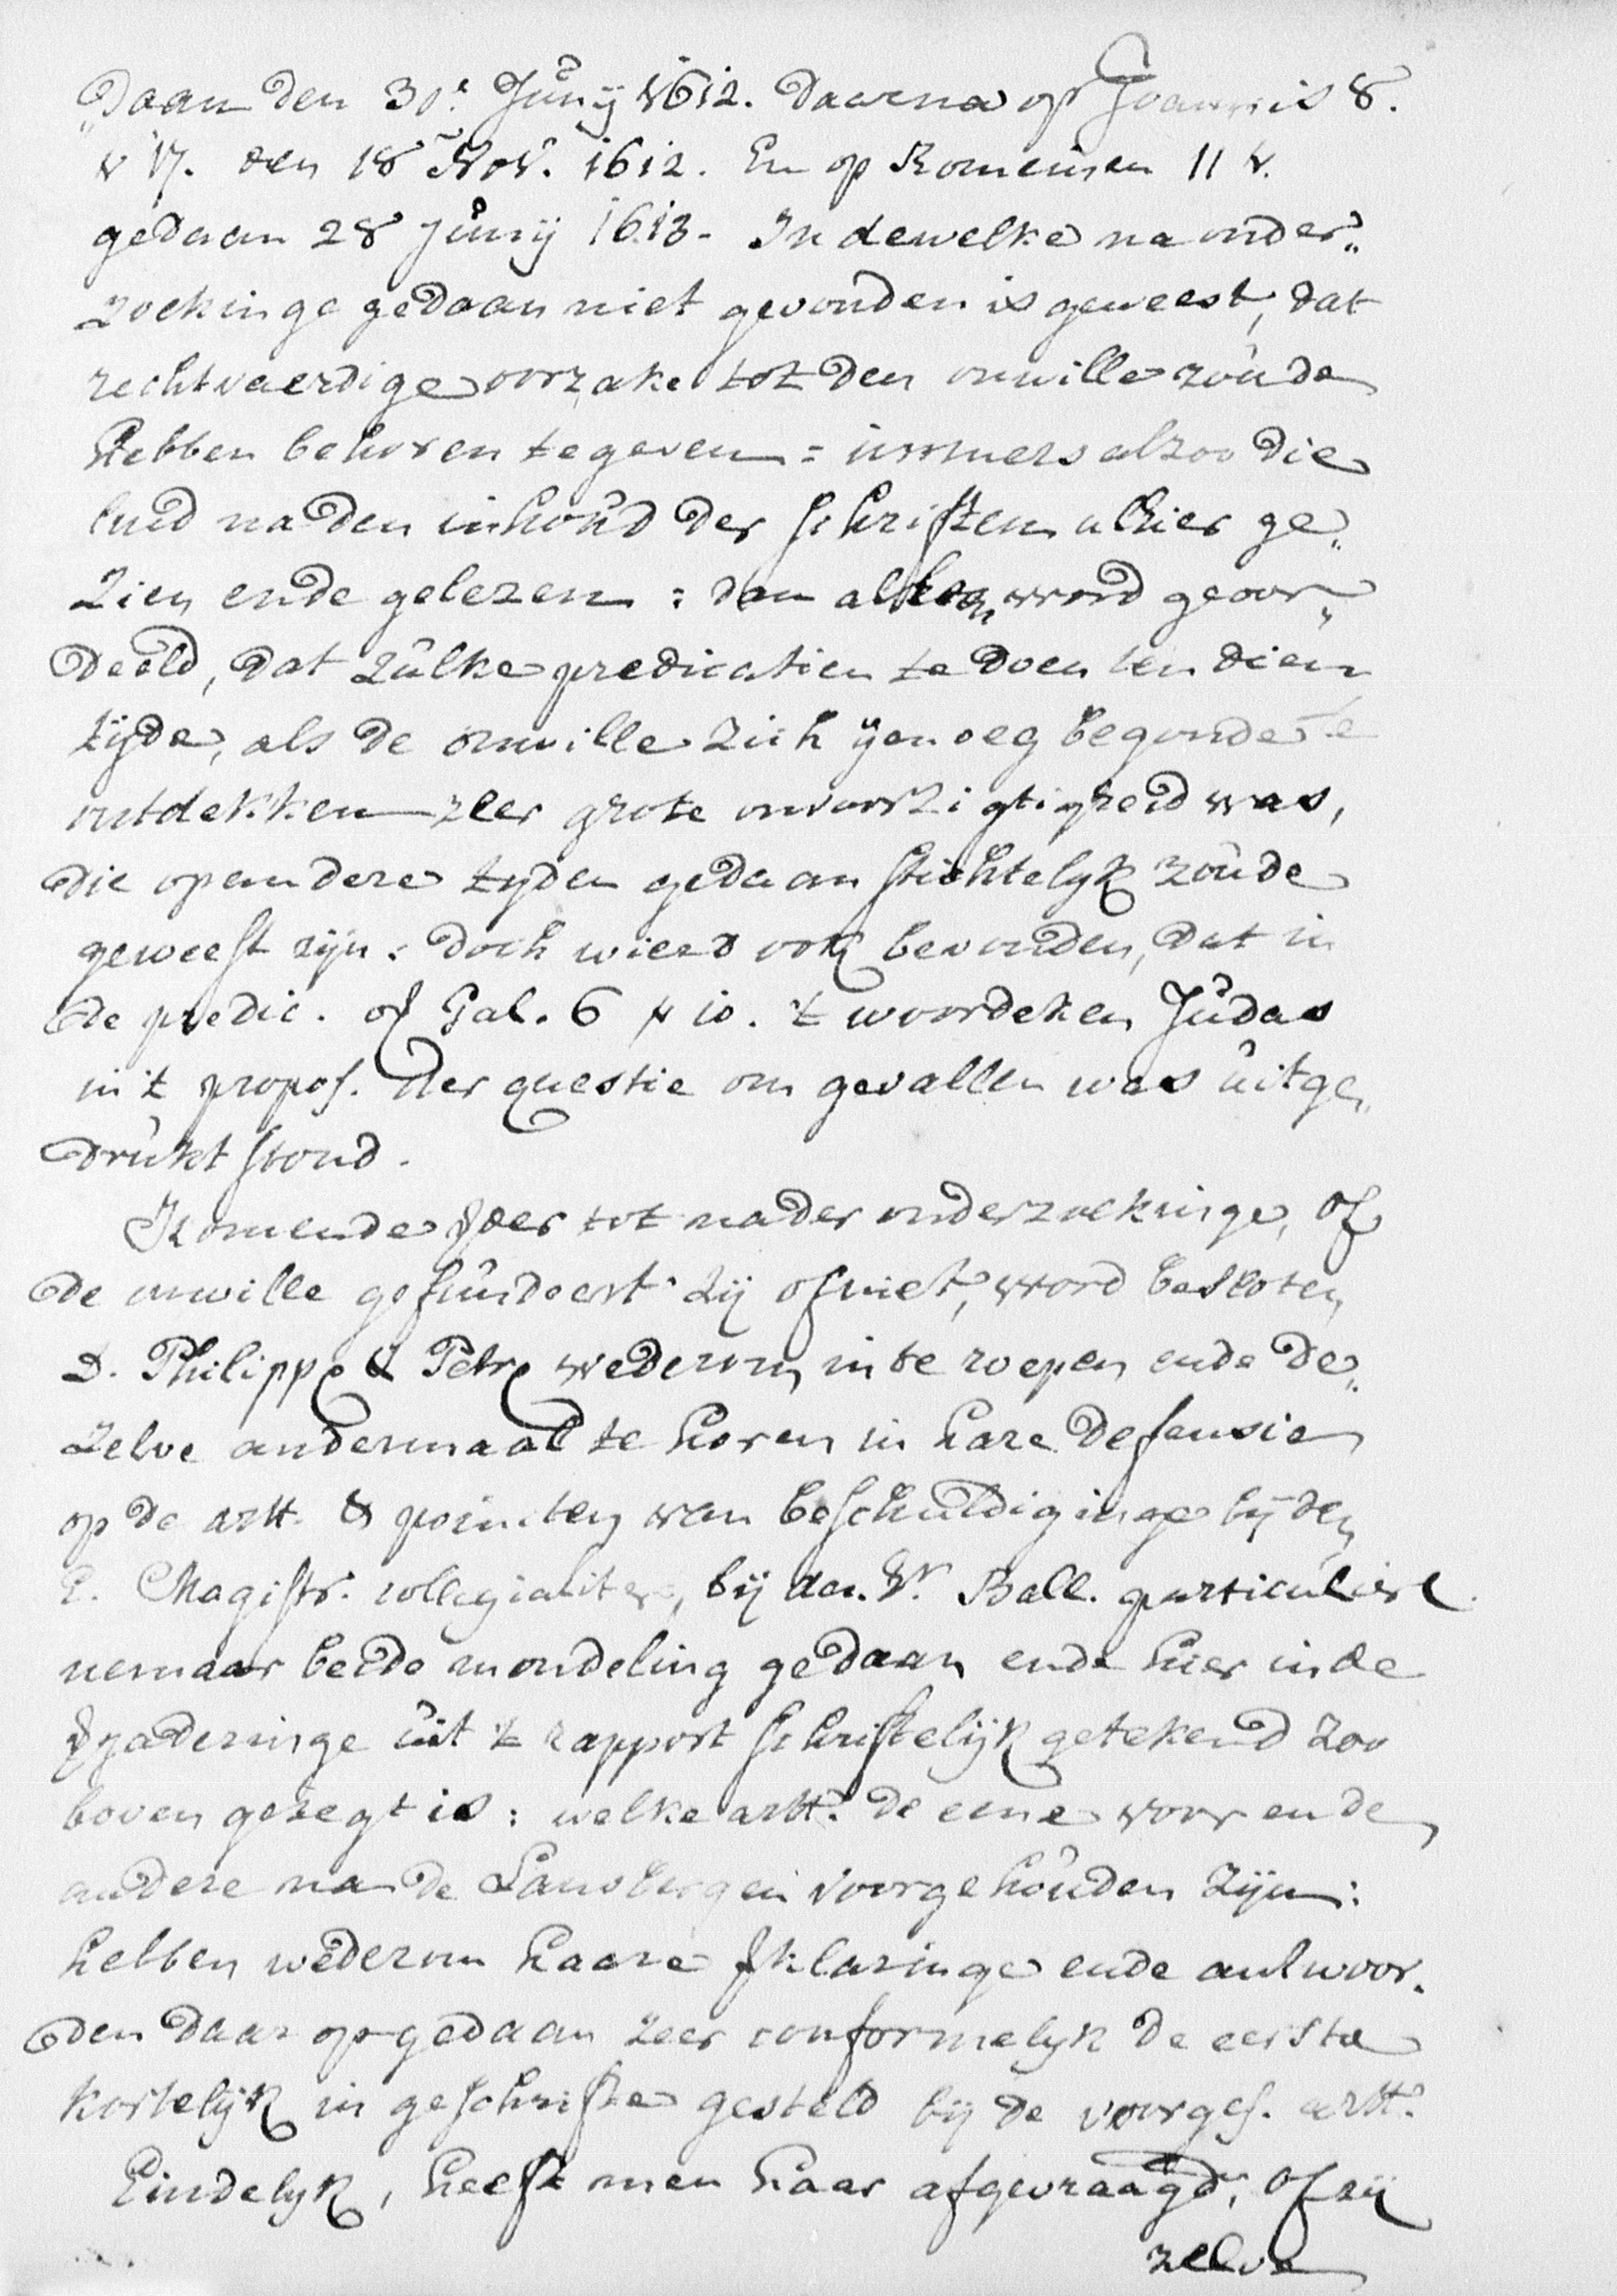 „daan den 30e. Junij 1612. daarna op Joannis 8.
v 17. den 18 Nov. 1612. En op Romeinen 11 v.
gedaan 28 Junij 1613 - In dewelke na onder„
zoekinge gedaan niet gevonden is geweest, dat
rechtvaerdige oorzake tot den onwille zoude
hebben behoren te geven = immers alzoo die
luid na den inhoud der schriften alhier ge„
zien ende gelezen : dan alleen word geoor„
deeld, dat zulke predicatien te doen ten dien
tijde, als de onwille zich genoeg begonde te
ontdekken zeer grote onvoorzigtigheid was,
die op andere tyden gedaan stichtelyk zoude
geweest zijn : doch wierd ook bevonden, dat in
de predic. of Gal. 6 v 10. 't woordeken Judas
in 't propos. der questie om gevallen was uitge„
drukt stond.
Komende ver tot nader onderzoekinge, of
de onwille gefundeert zij of niet, word besloten
D. Philippe & Petre wederom in te roepen ende de„
zelve andermaal te horen in hare defensien
op de artt. & pointen van beschuldiginge bij den
E. Magistr. collegialiter, bij den Hr. Ball. particuliere
nemaar beide mondeling gedaan ende hier in de
vgaderinge uit 't rapport schriftelijk getekend zoo
boven gezegt is : welke artt. de eene voor en de
andere na de Lansbergen voorgehouden zijn :
hebben wederom haare vklaringe ende antwoor„
den daar op gedaan zeer conformelyk de eerste
kortelijk in geschrifte gesteld bij de voorges. artt.
Eindelyk, heeft men haar afgevraagd, of zij
zelve